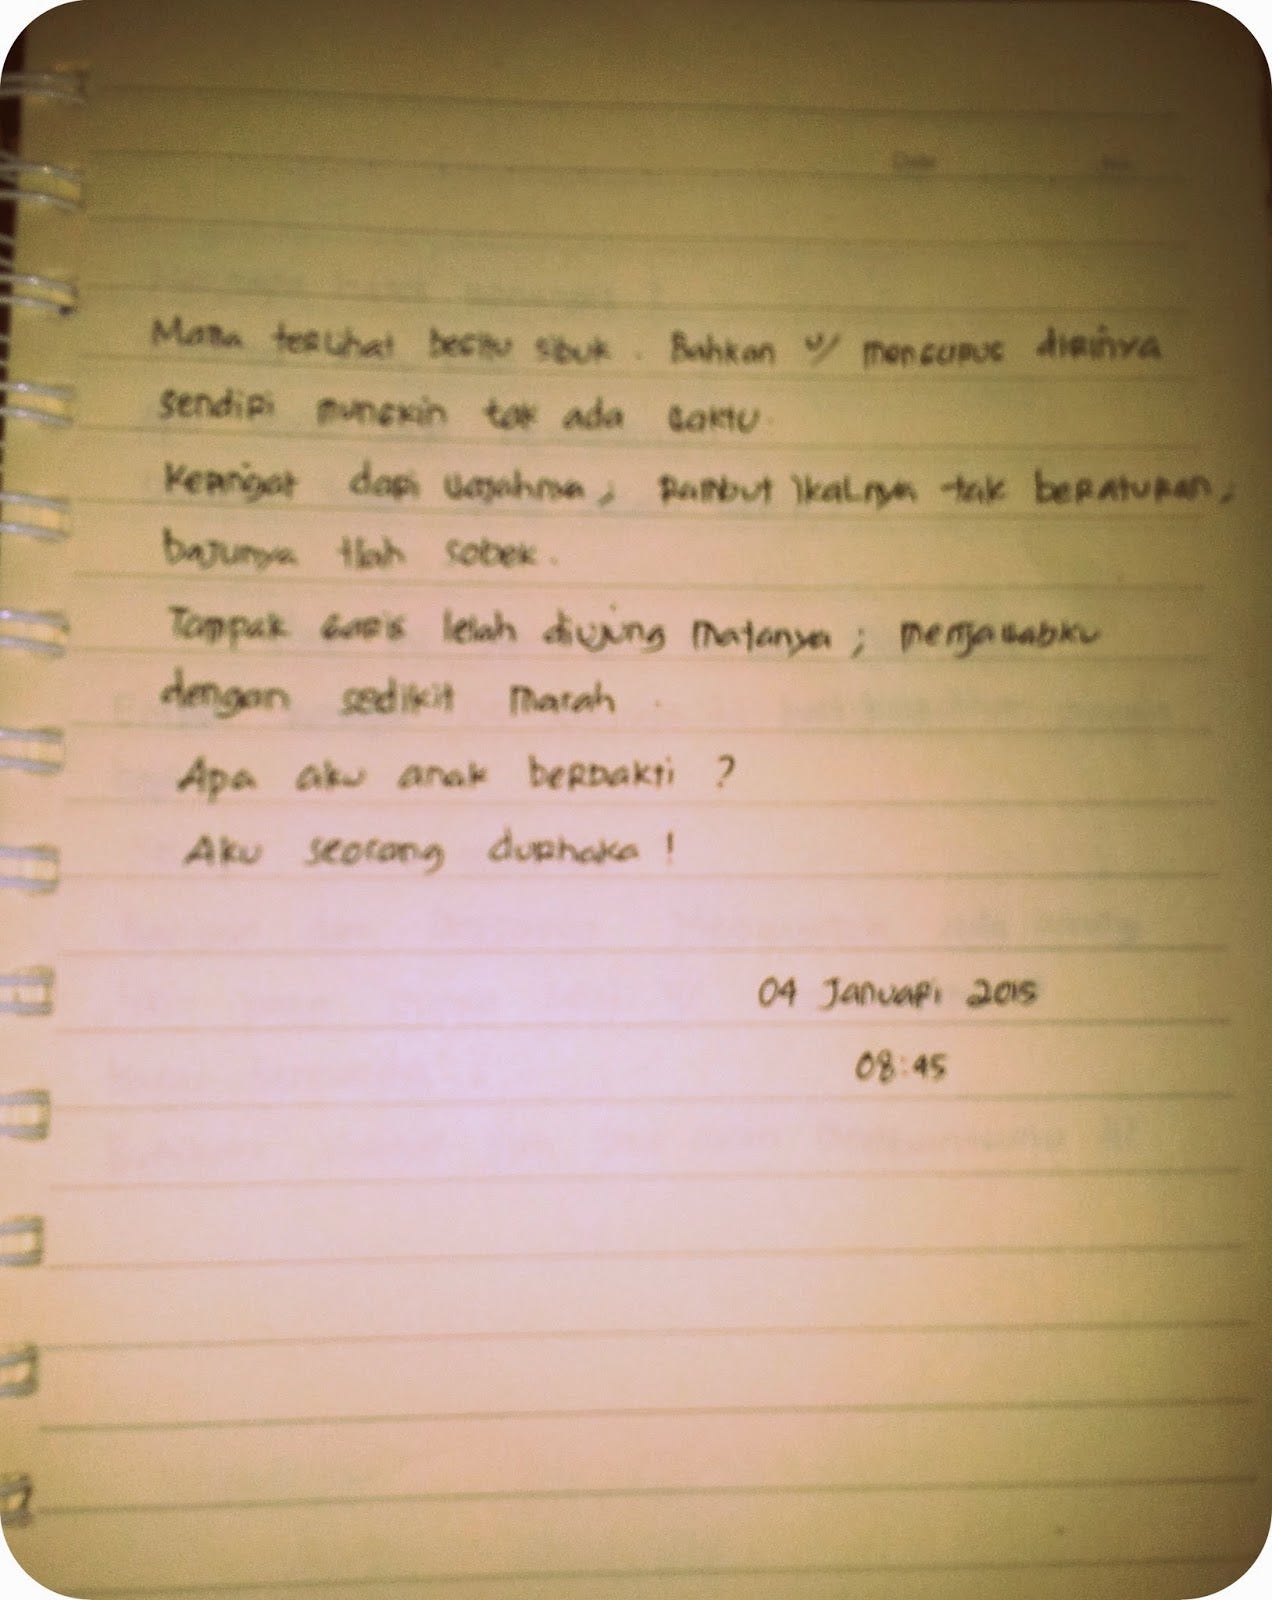 Date No
Mama terlihat begitu sibuk. Bahkan u/ mengurus dirinya
sendiri mungkin tak ada waktu.
Keringat dari wajahnya, rambut ikalnya tak beraturan,
bajunya tlah sobek.
Tampak garis lelah diujung matanya; menjawabku
dengan sedikit marah.
Apa aku anak berbakti ?
Aku seorang durhaka !
04 Januari 2015
08:45